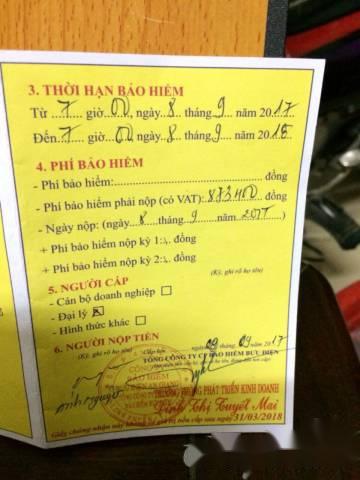 3. THỜI HẠN BẢO HIỂM
Từ 7 giờ 00, ngày 8 tháng 9 năm 2017
Đến 7 giờ 00, ngày 8 tháng 9 năm 2018
4. PHÍ BẢO HIỂM
- Phí bảo hiểm:........ đồng
- Phí bảo hiểm phải nộp (có VAT): 873.400 đồng
- Ngày nộp: (ngày 8 tháng 9 năm 2017)
+ Phí bảo hiểm nộp kỳ 1:.. đồng
+ Phí bảo hiểm nộp kỳ 2:.. đồng
(Ký, ghi rõ họ tên)
5. NGƯỜI CẤP
- Cán bộ doanh nghiệp ☐
- Đại lý ☒
- Hình thức khác ☐
6. NGƯỜI NỘP TIỀN
(Ký, ghi rõ họ tên)
Cấp hồi ngày 09 tháng 09 2017
TỔNG CÔNG TY CP BẢO HIỂM BƯU ĐIỆN
CÔNG TY
BẢO HIỂM
BƯU ĐIỆN AN GIANG
TRƯỞNG PHÒNG PHÁT TRIỂN KINH DOANH
Đinh Thị Tuyết Mai
Giấy chứng nhận này không có giá trị nếu cấp sau ngày 31/03/2018